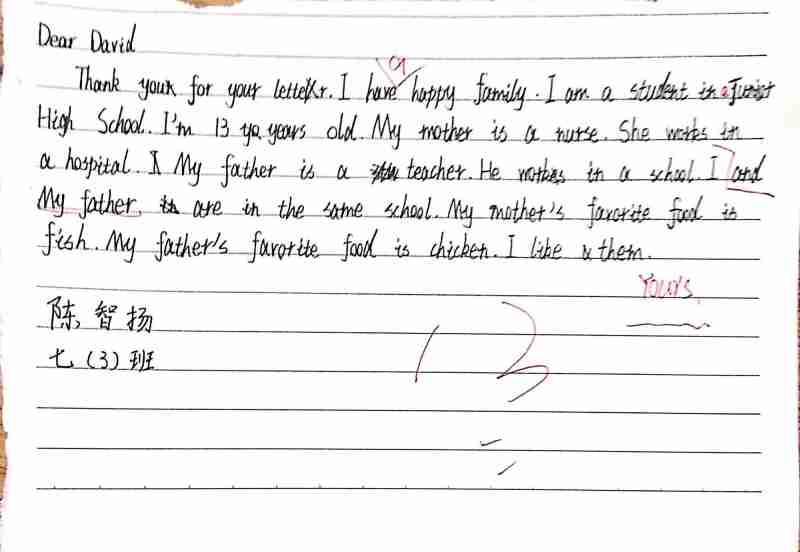 Dear David
Thank you for your letter. I have a happy family. I am a student in a Junior
High School. I'm 13 years old. My mother is a nurse. She works in
a hospital. My father is a teacher. He works in a school. I and
My father, are in the same school. My mother's favorite food is
fish. My father's favorite food is chicken. I like them.
Yours,
陈智扬
七(3)班
13